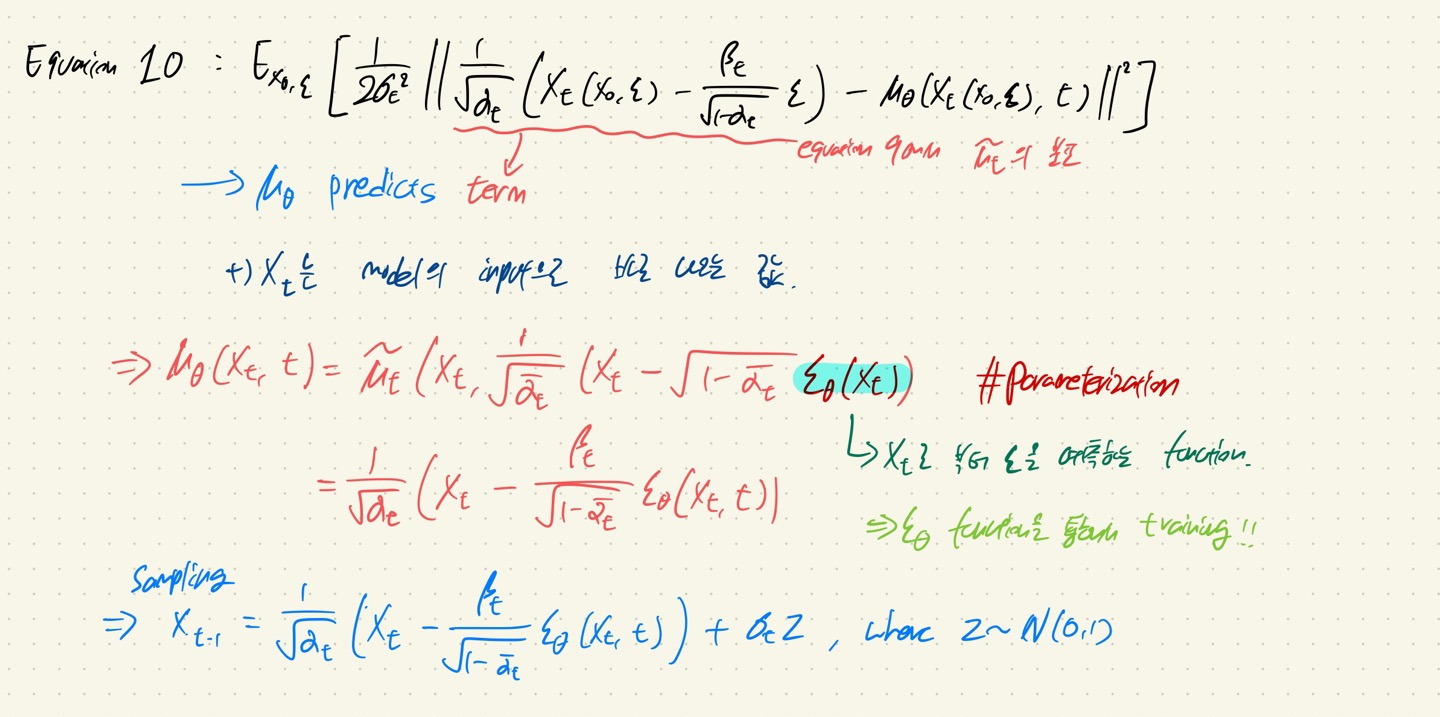 Equation 10 : E_{x₀,ε} [ 1/(2σ_t²) || 1/√α_t ( X_t(x₀,ε) - β_t/√(1-α_t) ε ) - μ_θ(X_t(x₀,ε), t) ||² ]
equation 9에서 μ̃_t의
→ μ_θ predicts term
+) X_t는 model의 input으로 바로 나오는 값.
⇒ μ_θ(X_t, t) = μ̃_t (X_t, 1/√ᾱ_t (X_t - √(1-ᾱ_t) ε_θ(X_t)) #Parameterization
↳ X_t로 부터 ε을 예측하는 function.
= 1/√α_t ( X_t - β_t/√(1-ᾱ_t) ε_θ(X_t, t) )
⇒ ε_θ function을 통해서 training!!
Sampling
⇒ X_{t-1} = 1/√α_t ( X_t - β_t/√(1-ᾱ_t) ε_θ(X_t, t) ) + σ_t Z , where Z ~ N(0,1)